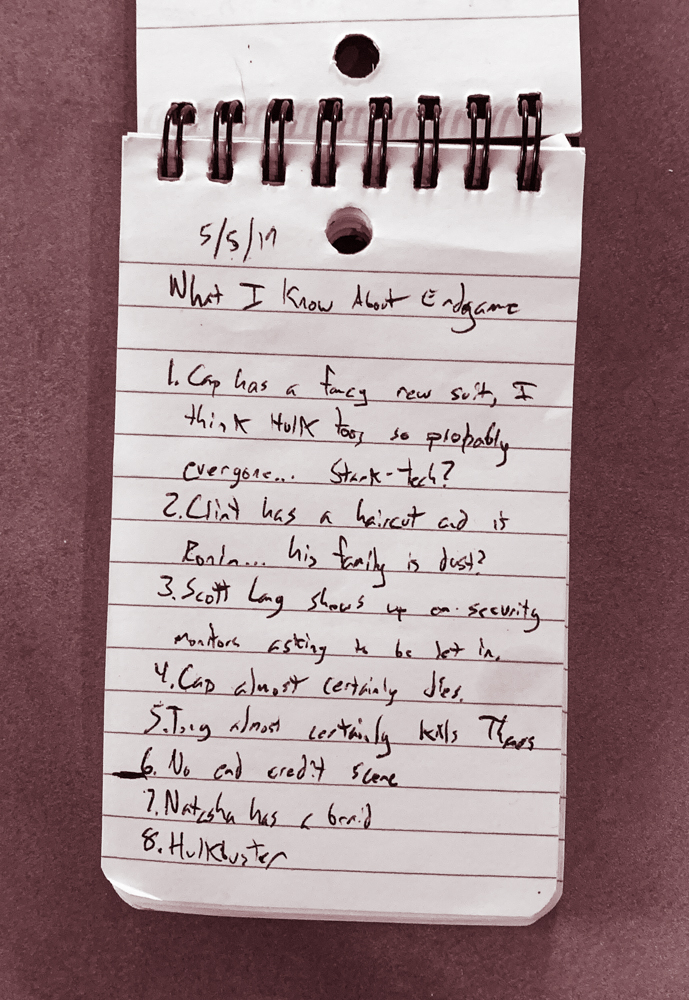 5/5/19
What I Know About Endgame
1. Cap has a fancy new suit, I
think Hulk too, so probably
everyone... Stark-tech?
2. Clint has a haircut and is
Ronin... his family is dust?
3. Scott Lang shows up on security
monitors asking to be let in.
4. Cap almost certainly dies.
5. Tony almost certainly kills Thanos
6. No end credit scene
7. Natasha has a braid
8. Hulkbuster